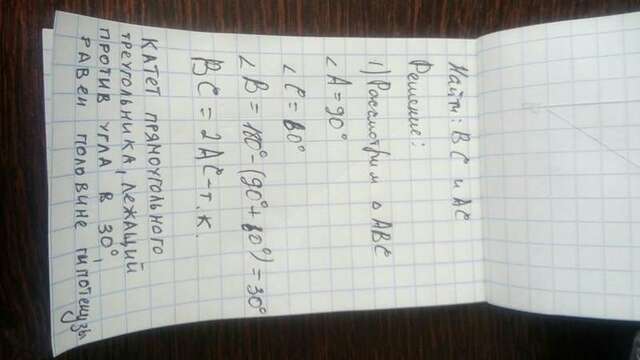 Найти: ВС и АС
Решение:
1) Рассмотрим △ АВС
∠ А = 90°
∠ С = 60°
∠ В = 180° - (90° + 60°) = 30°
ВС = 2АС - т.к.
КАТЕТ ПРЯМОУГОЛЬНОГО
ТРЕУГОЛЬНИКА, ЛЕЖАЩИЙ
ПРОТИВ УГЛА В 30°,
РАВЕН ПОЛОВИНЕ ГИПОТЕНУЗЫ